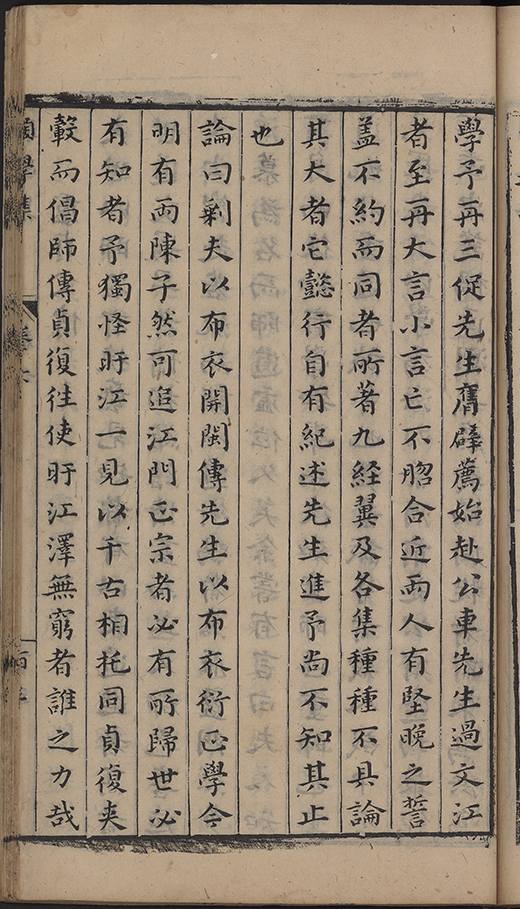 學予再三促先生膺辟薦始赴公車先生過文江
者至再大言小言亡不脗合近両人有堅晚之誓
盖不約而同者所著九経翼及各集種種不具論
其大者它懿行自有紀述先生進予尚不知其止
也
論曰剰夫以布衣開閩傳先生以布衣衍正學令
明有両陳子然可追江門正宗者必有所歸世必
有知者予獨怪盱江一見以千古相托同貞復夾
轂而倡師傳貞復徃使盱江澤無窮者誰之力哉
願學集
卷六